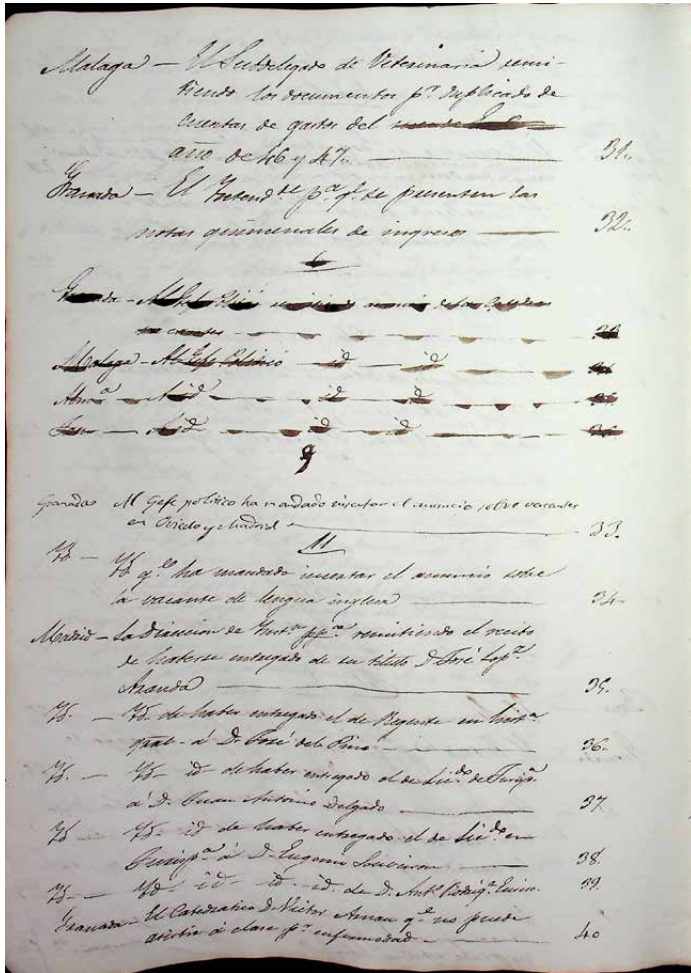 Malaga — El Subdelegado de Veterinaria remi-
tiendo los documentos pª duplicado de
cuentas de gastos del
año de 46 y 47. — 31.
Granada — El Intendte pª qe se presenten las
notas quincenales de ingresos — 32.
6
Granada - Al Gefe Politico remitiendo anuncio de las Catedras
vacantes — 33
Malaga - Al Gefe Politico — id — id — 34
Almª — Al id — id — id — 35.
Jaen — Al id — id — id — 36
9
Granada Al Gefe politico ha mandado insertar el anuncio sobre vacantes
en Oviedo y Madrid — 33.
11
Yd — Yd qe ha mandado insertar el anuncio sobre
la vacante de lengua inglesa — 34.
Madrid — La Direccion de remitiendo el recibo
de haberse entregado de su titulo D. José Lopz
Aranda — 35.
Yd. — Yd. de haber entregado el de Regente en
á D. José del Pino — 36.
Yd. — Yd — id de haber entregado el de Licdo de Jurispª
á D. Juan Antonio Delgado — 37.
Yd — Yd — id de haber entregado el de Licdo en
Jurispª á D. Eugenio — 38.
Yd — Yd — id — id — id. de D. Antº Rodrigz — 39.
Granada — El Catedratico D. Victor Arnau qe no puede
asistir á clase pr enfermedad — 40